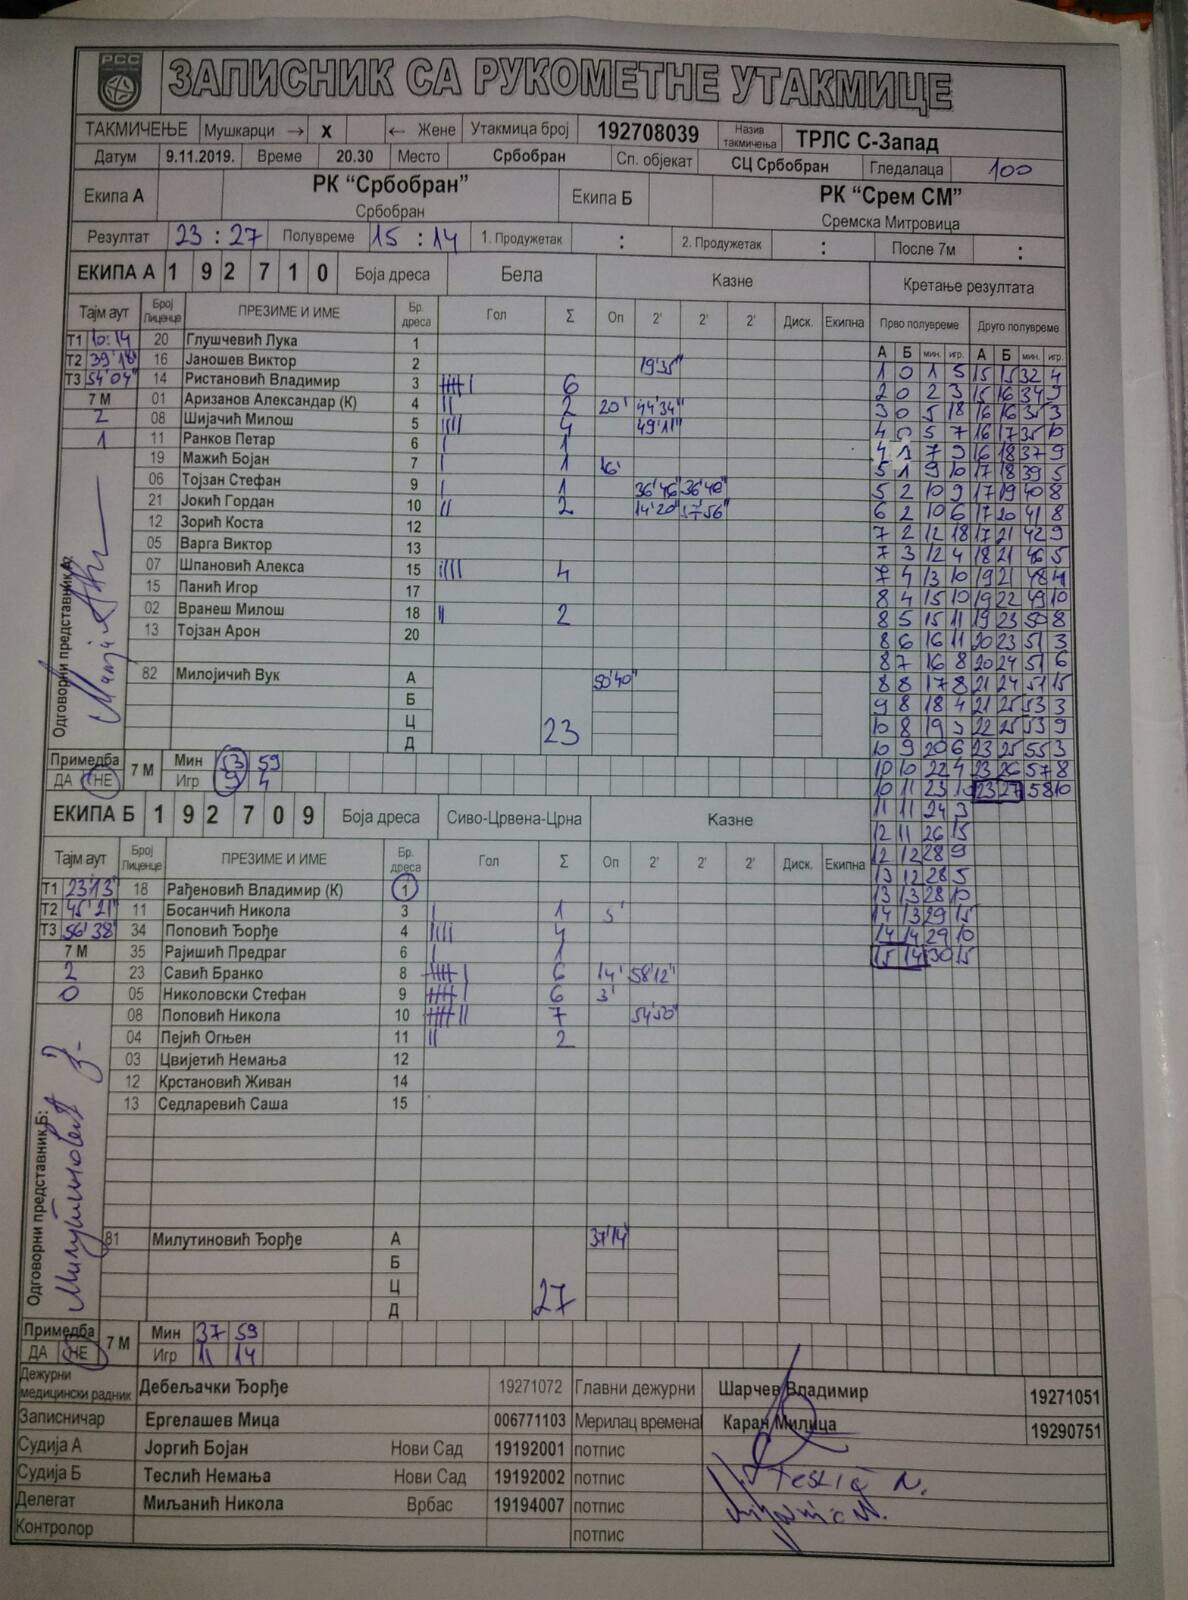 РСС
ЗАПИСНИК СА РУКОМЕТНЕ УТАКМИЦЕ
ТАКМИЧЕЊЕ Мушкарци → X ← Жене Утакмица број 192708039 Назив такмичења ТРЛС С-Запад
Датум 9.11.2019. Време 20.30 Место Србобран Сп. објекат СЦ Србобран Гледалаца 100
Екипа А РК “Србобран” Екипа Б РК “Срем СМ”
Србобран Сремска Митровица
Резултат 23 : 27 Полувреме 15 : 14 1. Продужетак : 2. Продужетак : После 7м :
ЕКИПА А 1 9 2 7 1 0 Боја дреса Бела Казне Кретање резултата
Тајм аут Број Лиценце ПРЕЗИМЕ И ИМЕ Бр. дреса Гол Σ Оп 2' 2' 2' Диск. Екипна Прво полувреме Друго полувреме
А Б мин. игр. А Б мин. игр.
Т1 10:14 20 Глушчевић Лука 1
Т2 39'18" 16 Јаношев Виктор 2 19'35"
Т3 54'04" 14 Ристановић Владимир 3 6
7 М 01 Аризанов Александар (К) 4 2 20' 44'34"
2 08 Шијачић Милош 5 4 49'11"
1 11 Ранков Петар 6 1
19 Мажић Бојан 7 1 16'
06 Тојзан Стефан 9 1 36'46" 36'48"
21 Јокић Гордан 10 2 14'20" 57'56"
12 Зорић Коста 12
05 Варга Виктор 13
07 Шпановић Алекса 15 4
15 Панић Игор 17
02 Вранеш Милош 18 2
13 Тојзан Арон 20
82 Милојичић Вук А 50'40"
Б
Ц
Д
23
Одговорни представник А:
Примедба ДА НЕ 7 М Мин 53 59
Игр 9 4
1 0 1 5 15 15 32 4
2 0 2 3 15 16 34 9
3 0 5 18 16 16 35 3
4 0 5 7 16 17 35 10
4 1 7 9 16 18 37 9
5 1 9 10 17 18 39 5
5 2 10 9 17 19 40 8
6 2 10 6 17 20 41 8
7 2 12 18 17 21 42 9
7 3 12 4 18 21 46 5
7 4 13 10 19 21 48 4
8 4 15 10 19 22 49 10
8 5 15 11 19 23 50 8
8 6 16 11 20 23 51 3
8 7 16 8 20 24 51 6
8 8 17 8 21 24 51 15
9 8 18 4 21 25 53 3
10 8 19 3 22 25 53 9
10 9 20 6 23 25 55 3
10 10 22 4 23 26 57 8
10 11 23 23 27 58 10
11 11 24 3
12 11 26 15
12 12 28 9
13 12 28 5
13 13 28 10
14 13 29 15
14 14 29 10
15 14 30 15
ЕКИПА Б 1 9 2 7 0 9 Боја дреса Сиво-Црвена-Црна Казне
Тајм аут Број Лиценце ПРЕЗИМЕ И ИМЕ Бр. дреса Гол Σ Оп 2' 2' 2' Диск. Екипна
Т1 23'13" 18 Рађеновић Владимир (К) 1
Т2 45'21" 11 Босанчић Никола 3 1 5'
Т3 56'38" 34 Поповић Ђорђе 4 4
7 М 35 Рајишић Предраг 6 1
2 23 Савић Бранко 8 6 14' 58'12"
0 05 Николовски Стефан 9 6 3'
08 Поповић Никола 10 7 54'50"
04 Пејић Огњен 11 2
03 Цвијетић Немања 12
12 Крстановић Живан 14
13 Седларевић Саша 15
81 Милутиновић Ђорђе А 37'14"
Б
Ц
Д
27
Одговорни представник Б: Милутиновић Ђ
Примедба ДА НЕ 7 М Мин 37 59
Игр 11 14
Дежурни медицински радник Дебељачки Ђорђе 19271072 Главни дежурни Шарчев Владимир 19271051
Записничар Ергелашев Мица 006771103 Мерилац времена Каран Милица 19290751
Судија А Јоргић Бојан Нови Сад 19192001 потпис
Судија Б Теслић Немања Нови Сад 19192002 потпис Teslić N.
Делегат Миљанић Никола Врбас 19194007 потпис
Контролор потпис